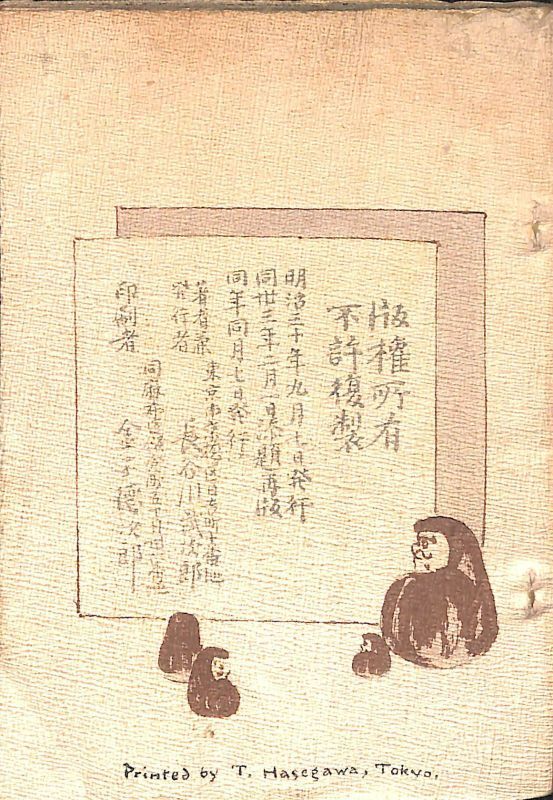 版權所有
不許復製
明治三十年九月七日発行
同卅三年二月一日改題再版
同年同月七日発行
著者兼
発行者
東京市京橋区日吉町十番地
長谷川武次郎
印刷者
同
金子德次郎
Printed by T. Hasegawa, Tokyo.